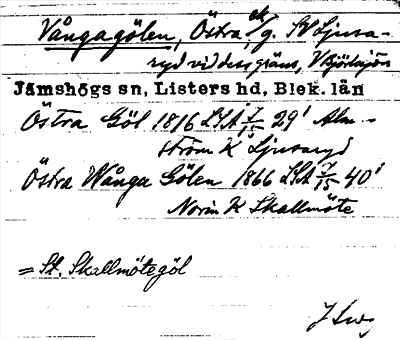 Vångagölen, Östra, ek/g. SV Ljusa-
ryd vid dess gräns, V Björksjön
Jämshögs sn, Listers hd, Blek. län
Östra Göl 1816 LSA 7/15 29' Alm-
ström K Ljusaryd
Östra Wånga Gölen 1866 LSA 7/15 40'
Norin K Skallmöte
= St. Skallmötegöl